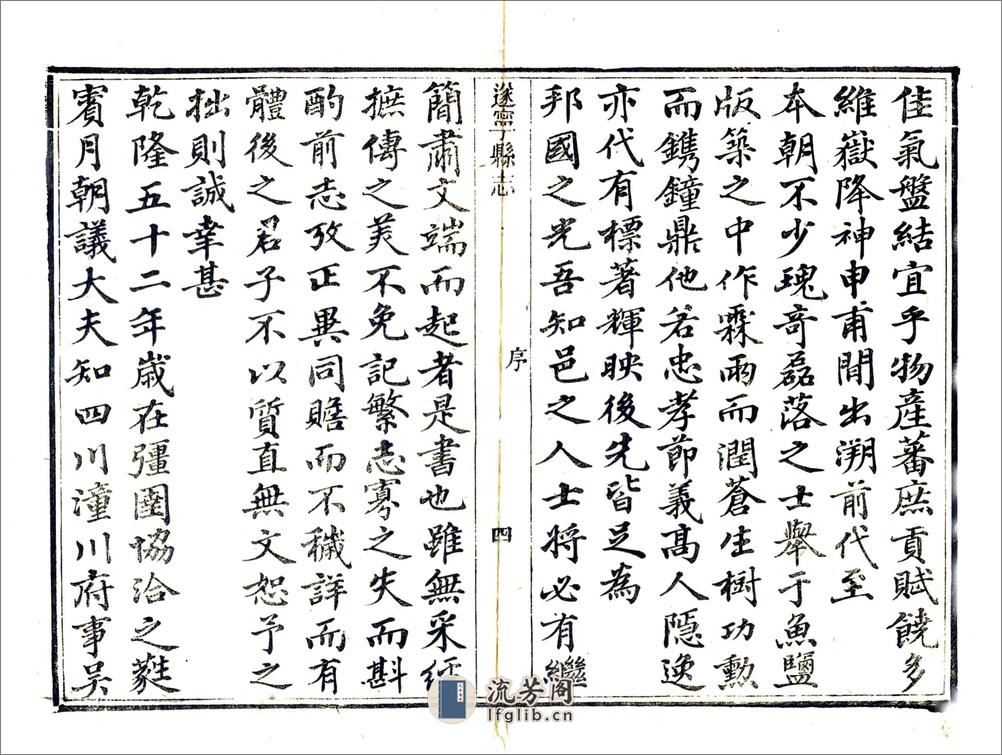 佳氣盤結宜乎物產蕃庶貢賦饒多
維嶽降神申甫間出溯前代至
本朝不少瑰奇磊落之士舉于魚鹽
版築之中作霖雨而潤蒼生樹功勳
而鐫鐘鼎他若忠孝節義高人隱逸
亦代有標著輝映後先皆足為
邦國之光吾知邑之人士將必有繼
遂寧縣志 序 四
簡肅文端而起者是書也雖無采綎
摭傳之美不免記繁志寡之失而斟
酌前志攷正異同贍而不穢詳而有
體後之君子不以質直無文恕予之
拙則誠幸甚
乾隆五十二年歲在彊圉協洽之蕤
賓月朝議大夫知四川潼川府事吳
流芳阁
lfglib.cn